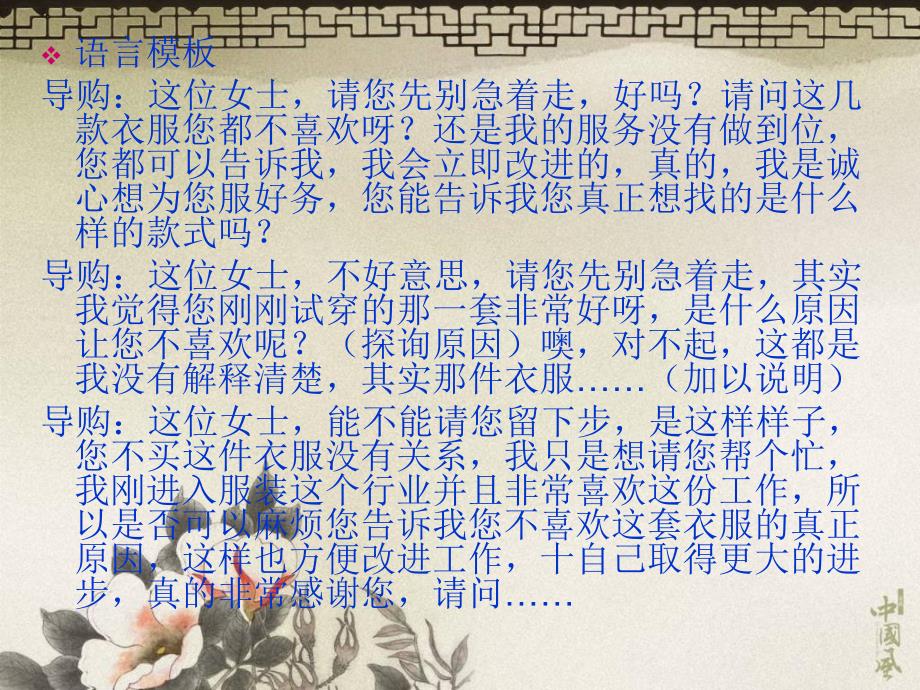 ❖ 语言模板
导购：这位女士，请您先别急着走，好吗？请问这几
款衣服您都不喜欢呀？还是我的服务没有做到位，
您都可以告诉我，我会立即改进的，真的，我是诚
心想为您服好务，您能告诉我您真正想找的是什么
样的款式吗？
导购：这位女士，不好意思，请您先别急着走，其实
我觉得您刚刚试穿的那一套非常好呀，是什么原因
让您不喜欢呢？（探询原因）噢，对不起，这都是
我没有解释清楚，其实那件衣服……（加以说明）
导购：这位女士，能不能请您留下步，是这样样子，
您不买这件衣服没有关系，我只是想请您帮个忙，
我刚进入服装这个行业并且非常喜欢这份工作，所
以是否可以麻烦您告诉我您不喜欢这套衣服的真正
原因，这样也方便改进工作，十自己取得更大的进
步，真的非常感谢您，请问……
中國风